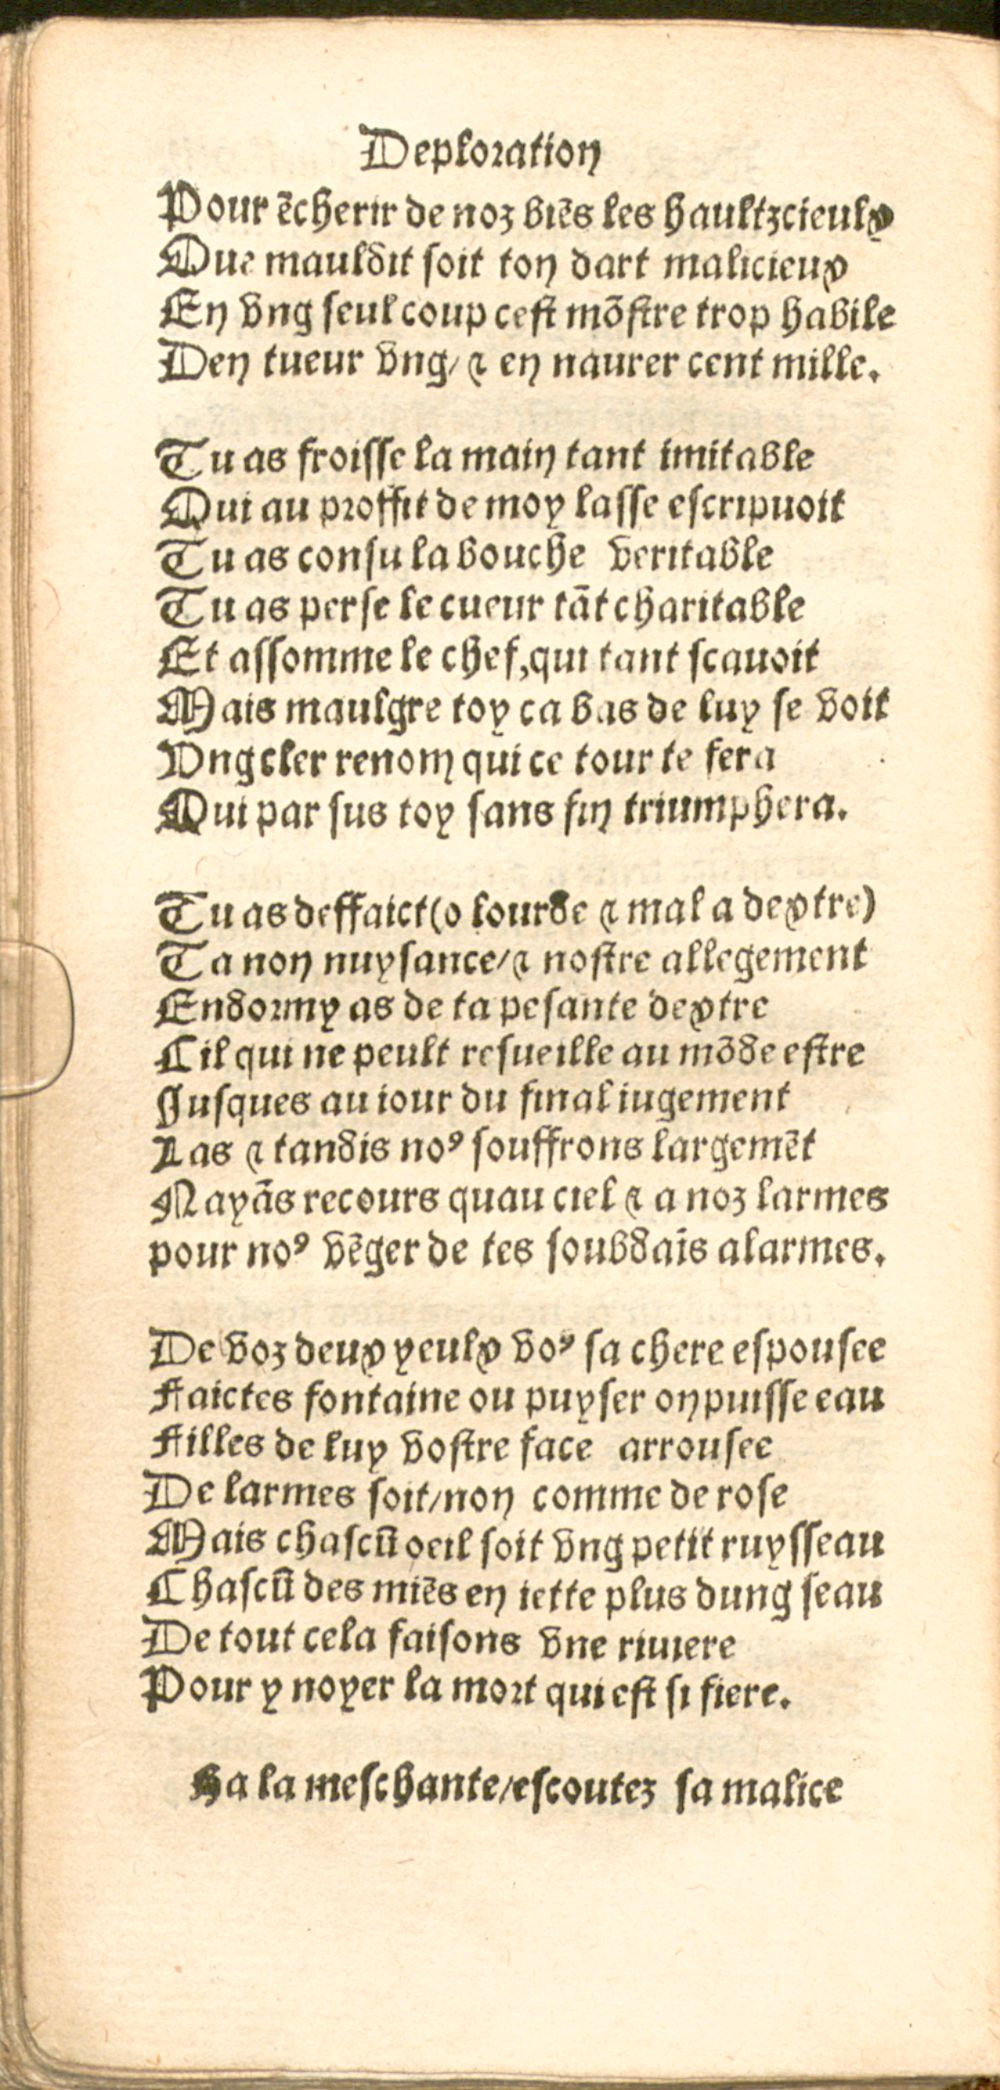 Deploration
Pour ẽcherir de noz biẽs les haultzcieulx
Que mauldit soit ton dart malicieux
En vng seul coup cest mõstre trop habile
Den tueur vng/ ⁊ en naurer cent mille.
Tu as froisse la main tant imitable
Qui au proffit de moy lasse escripuoit
Tu as consu la bouche veritable
Tu as perse le cueur tãt charitable
Et assomme le chef,qui tant scauoit
Mais maulgre toy ca bas de luy se voit
Vng cler renom qui ce tour te fera
Qui par sus toy sans fin triumphera.
Tu as deffaict(o lourde ⁊ mal a dextre)
Ta non nuysance/⁊ nostre allegement
Endormy as de ta pesante dextre
Cil qui ne peult resueille au mõde estre
Jusques au iour du final iugement
Las ⁊ tandis noꝰ souffrons largemẽt
Nayãs recours quau ciel ⁊ a noz larmes
pour noꝰ vẽger de tes soubdaĩs alarmes.
De voz deux yeulx voꝰ sa chere espousee
Faictes fontaine ou puyser on puisse eau
Filles de luy vostre face arrousee
De larmes soit/non comme de rose
Mais chascũ oeil soit vng petit ruysseau
Chascũ des miẽs en iette plus dung seau
De tout cela faisons vne riuiere
Pour y noyer la mort qui est si fiere.
Ha la meschante/escoutez sa malice